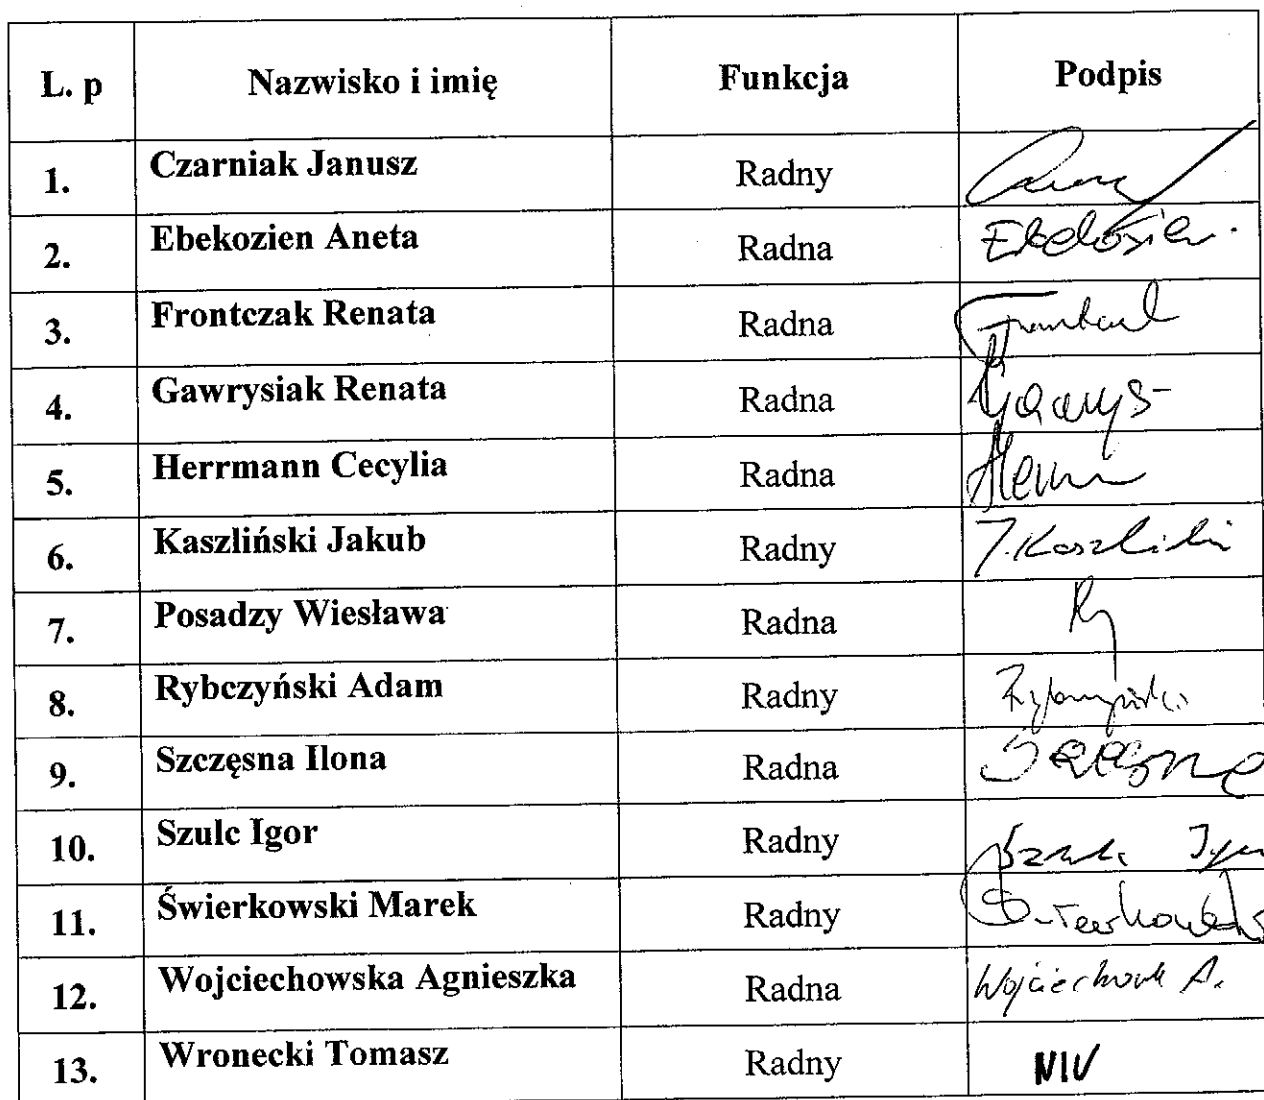 L. p Nazwisko i imię Funkcja Podpis
1. Czarniak Janusz Radny
2. Ebekozien Aneta Radna Ebekozien.
3. Frontczak Renata Radna
4. Gawrysiak Renata Radna Gawrys-
5. Herrmann Cecylia Radna
6. Kaszliński Jakub Radny J. Kaszliński
7. Posadzy Wiesława Radna
8. Rybczyński Adam Radny
9. Szczęsna Ilona Radna
10. Szulc Igor Radny Szulc Igor
11. Świerkowski Marek Radny
12. Wojciechowska Agnieszka Radna A.
13. Wronecki Tomasz Radny